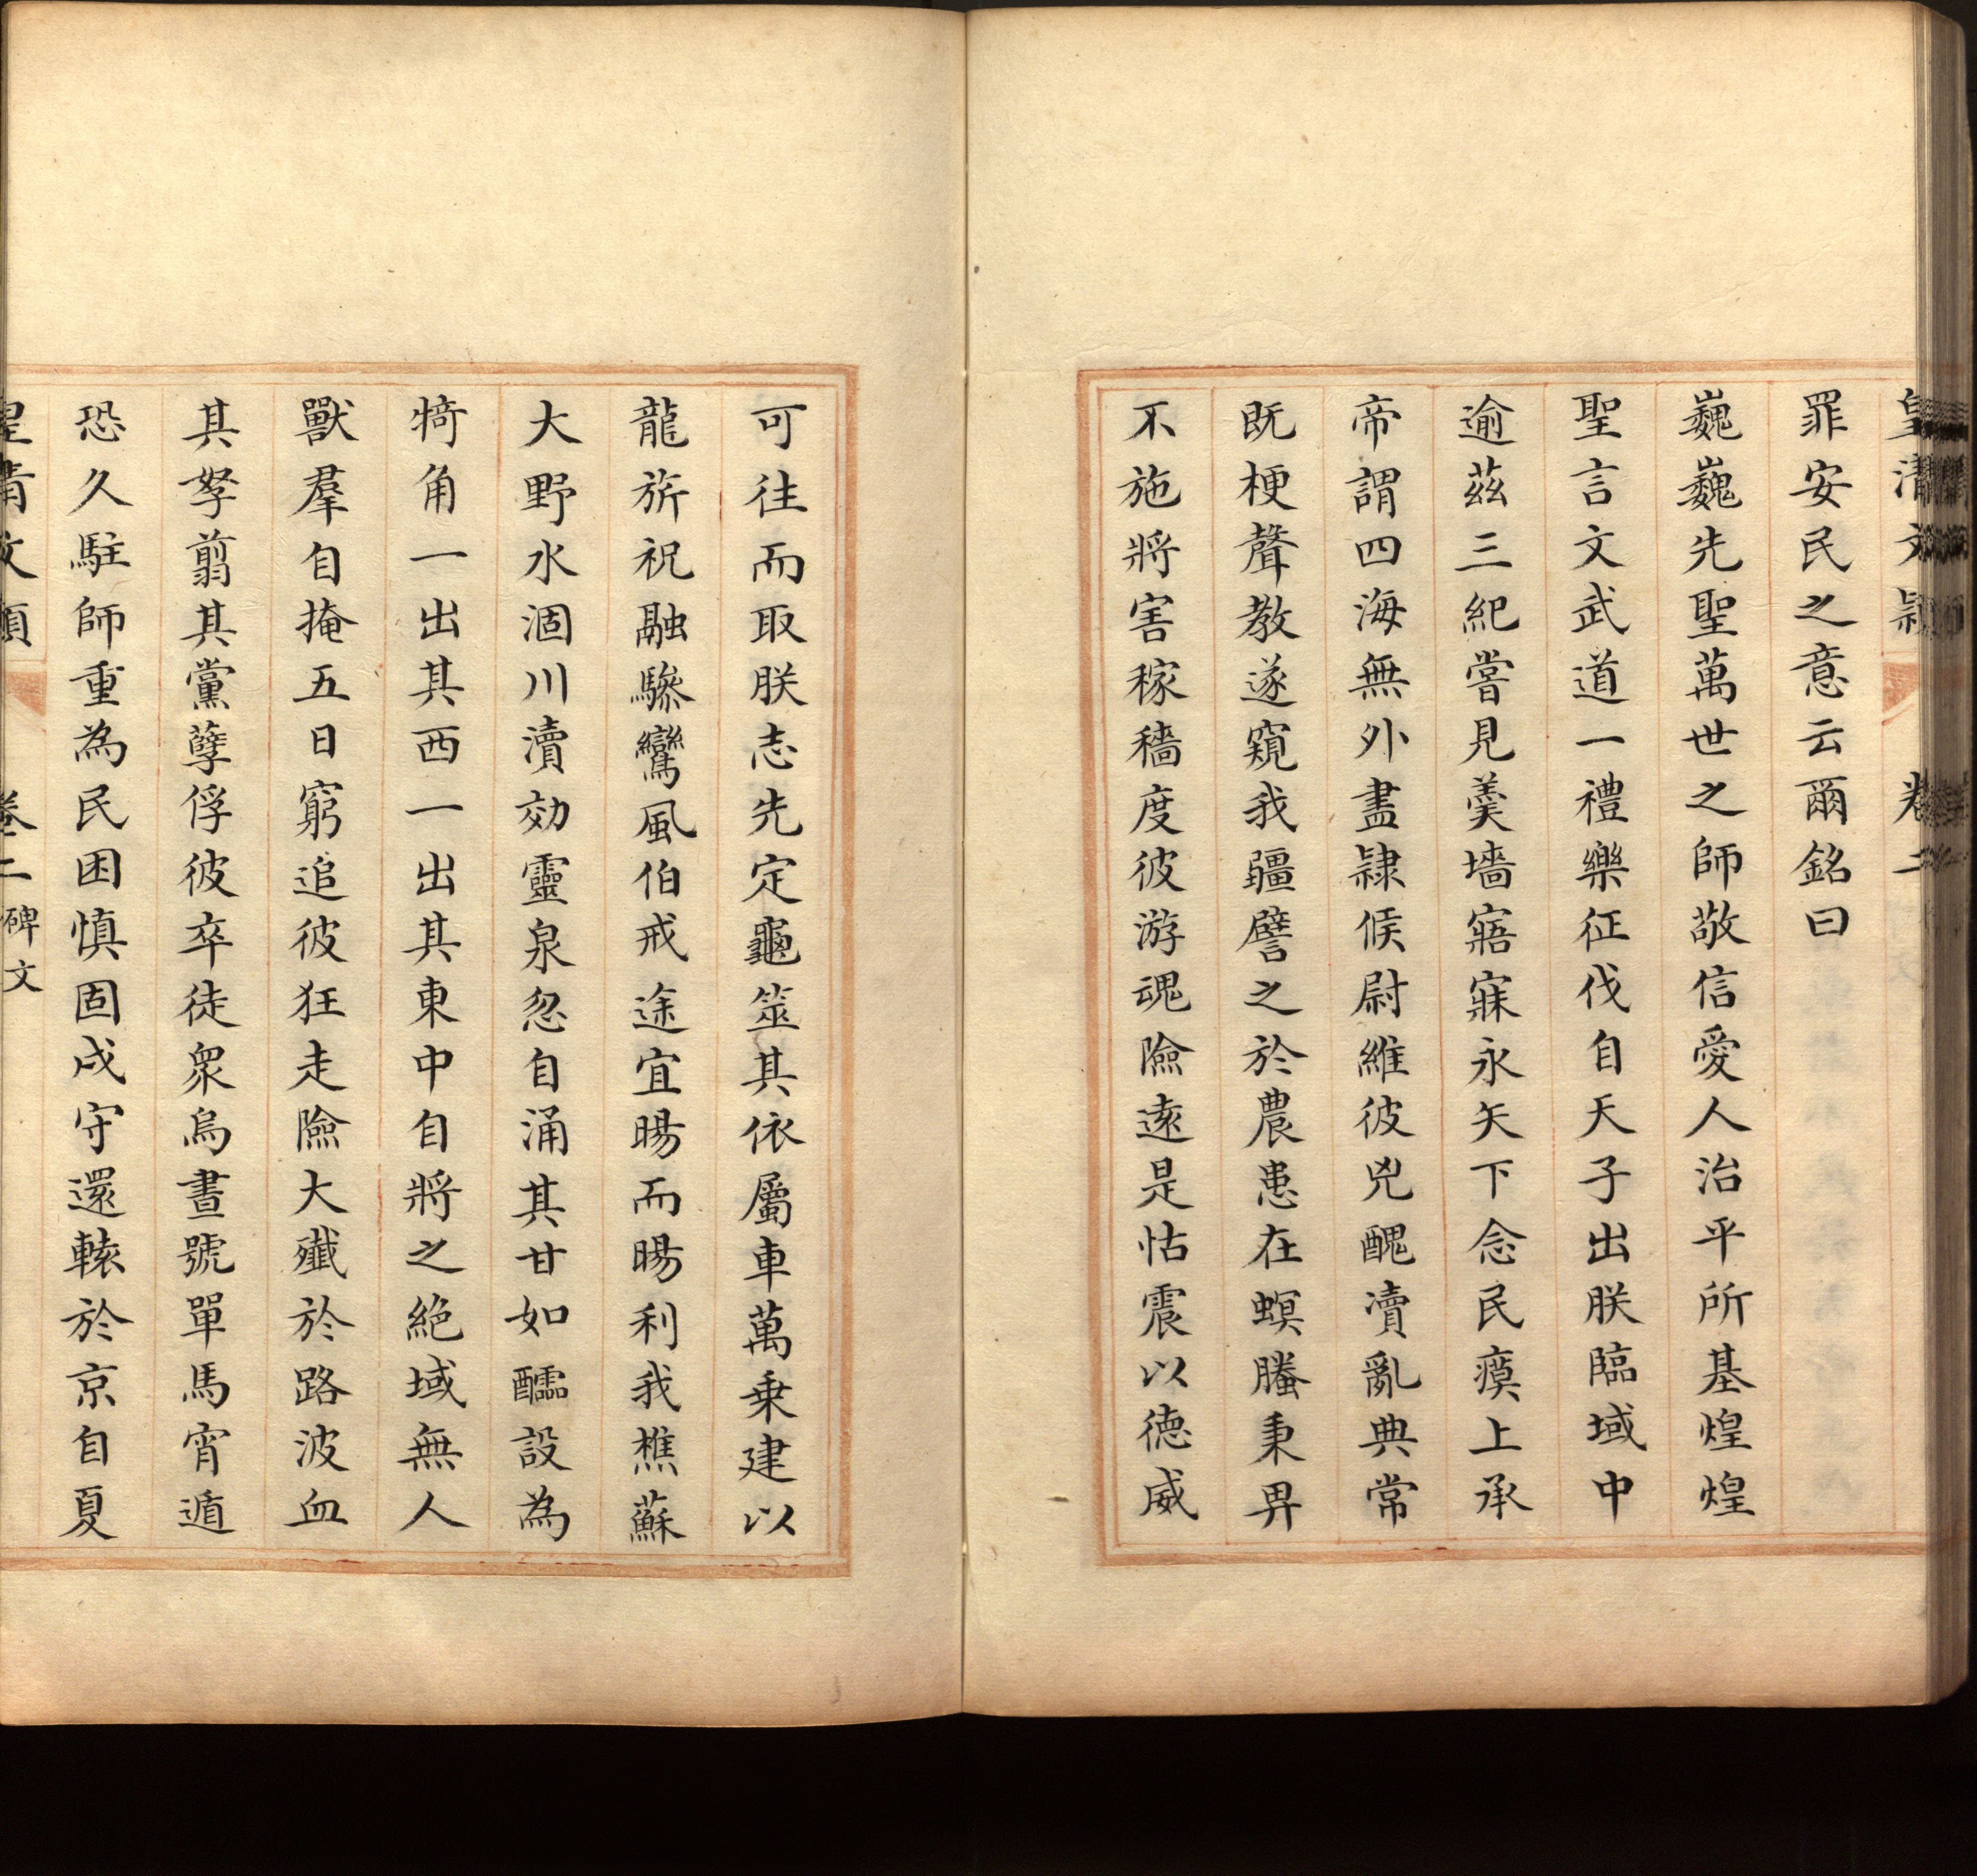 皇清文穎 卷二
罪安民之意云爾銘曰
巍巍先聖萬世之師敬信愛人治平所基煌煌
聖言文武道一禮樂征伐自天子出朕臨域中
逾茲三紀嘗見羹墻寤寐永矢下念民瘼上承
帝謂四海無外盡隸候尉維彼兇醜瀆亂典常
既梗聲教遂窺我疆譬之於農患在螟螣秉畀
不施將害稼穡度彼游魂險遠是怙震以德威
可往而取朕志先定龜筮其依屬車萬乗建以
龍旂祝融驂鸞風伯戒途宜暘而暘利我樵蘇
大野水涸川瀆効靈泉忽自涌其甘如醹設為
犄角一出其西一出其東中自將之絶域無人
獸羣自掩五日窮追彼狂走險大殲於路波血
其孥翦其黨孽俘彼卒徒衆烏晝號單馬宵遁
恐久駐師重為民困慎固戍守還轅於京自夏
皇清文穎 卷二 碑文